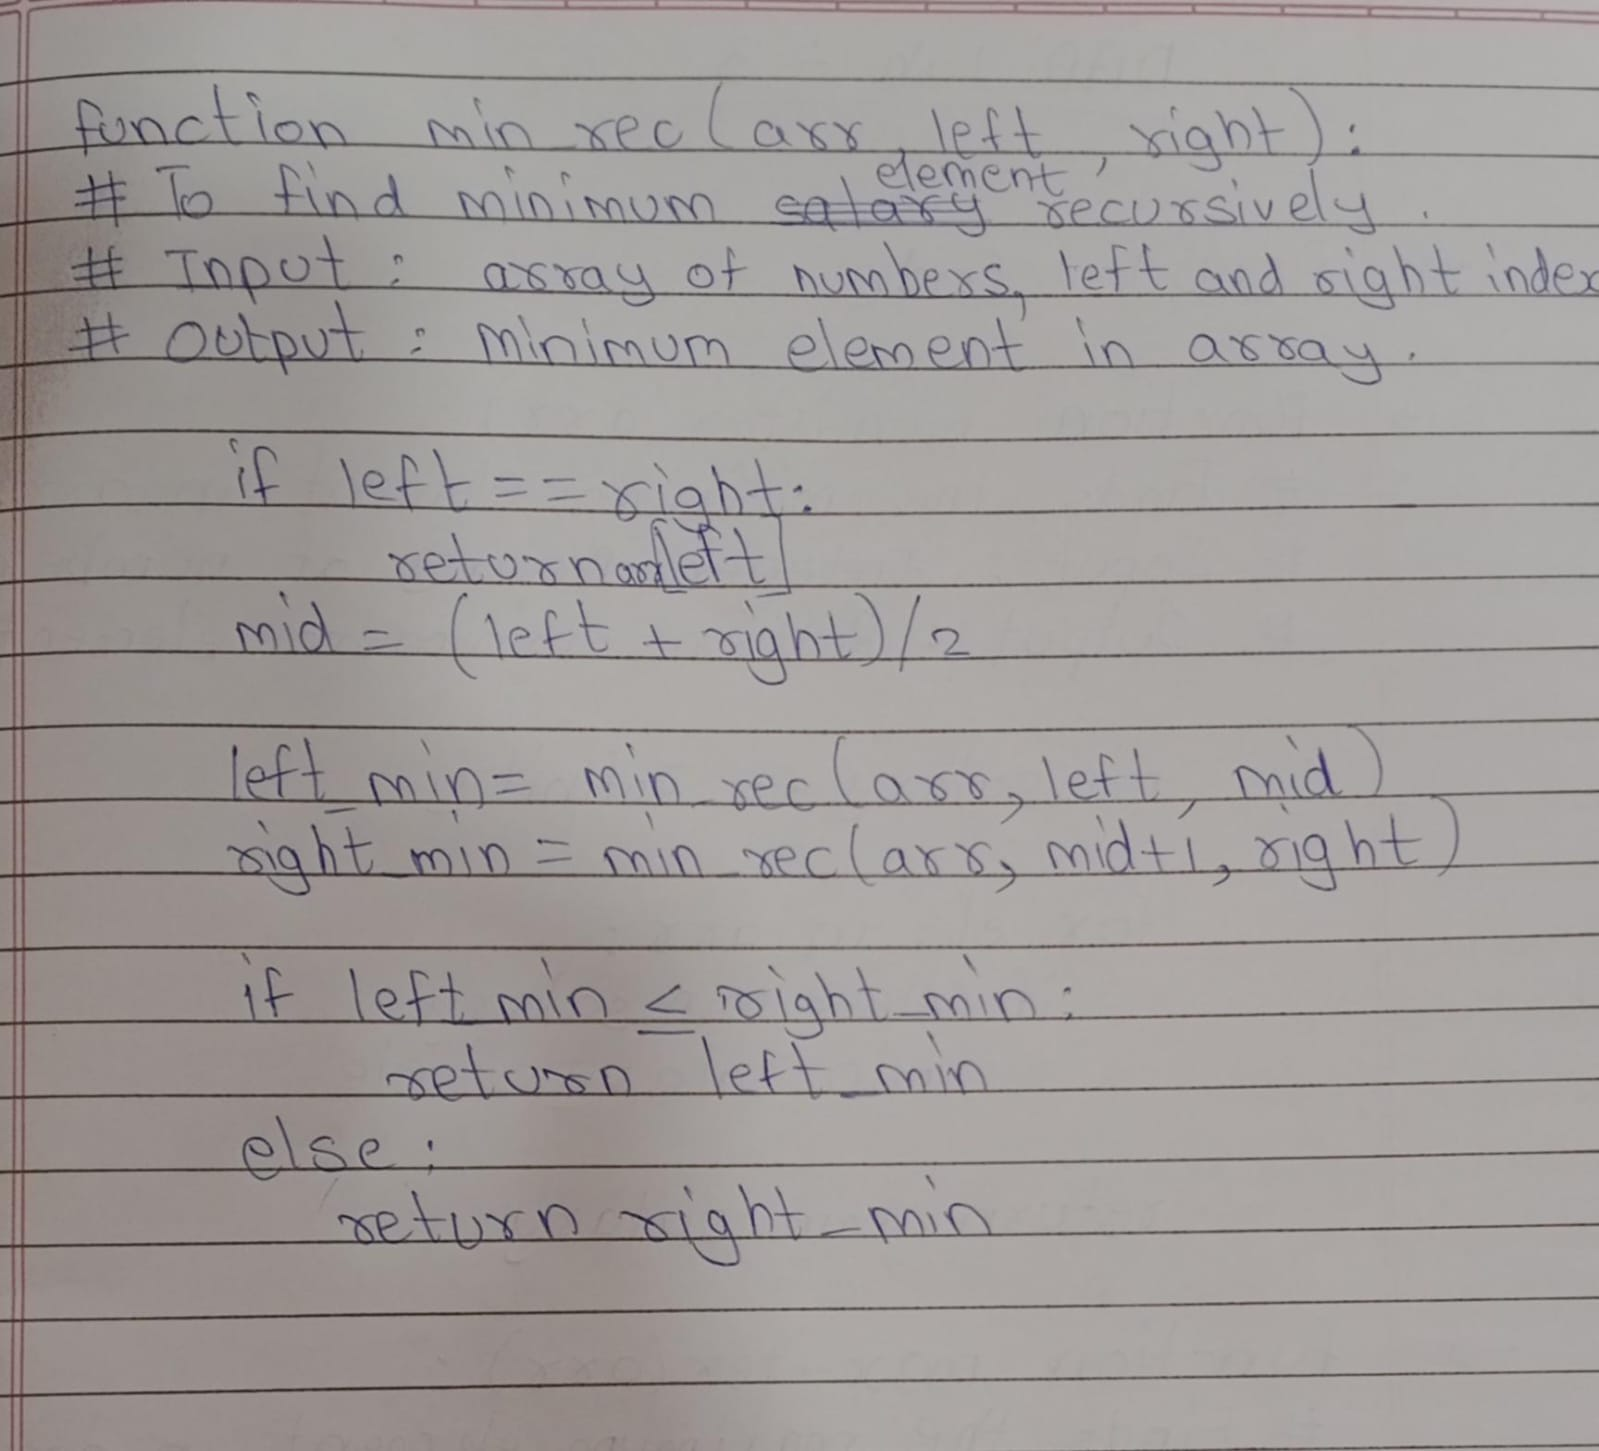 function min_rec(arr, left, right):
# To find minimum salary element recursively.
# Input : array of numbers, left and right index
# Output : minimum element in array.
if left == right:
return arr[left]
mid = (left + right)/2
left_min = min_rec(arr, left, mid)
right_min = min_rec(arr, mid+1, right)
if left_min <= right_min:
return left_min
else:
return right_min